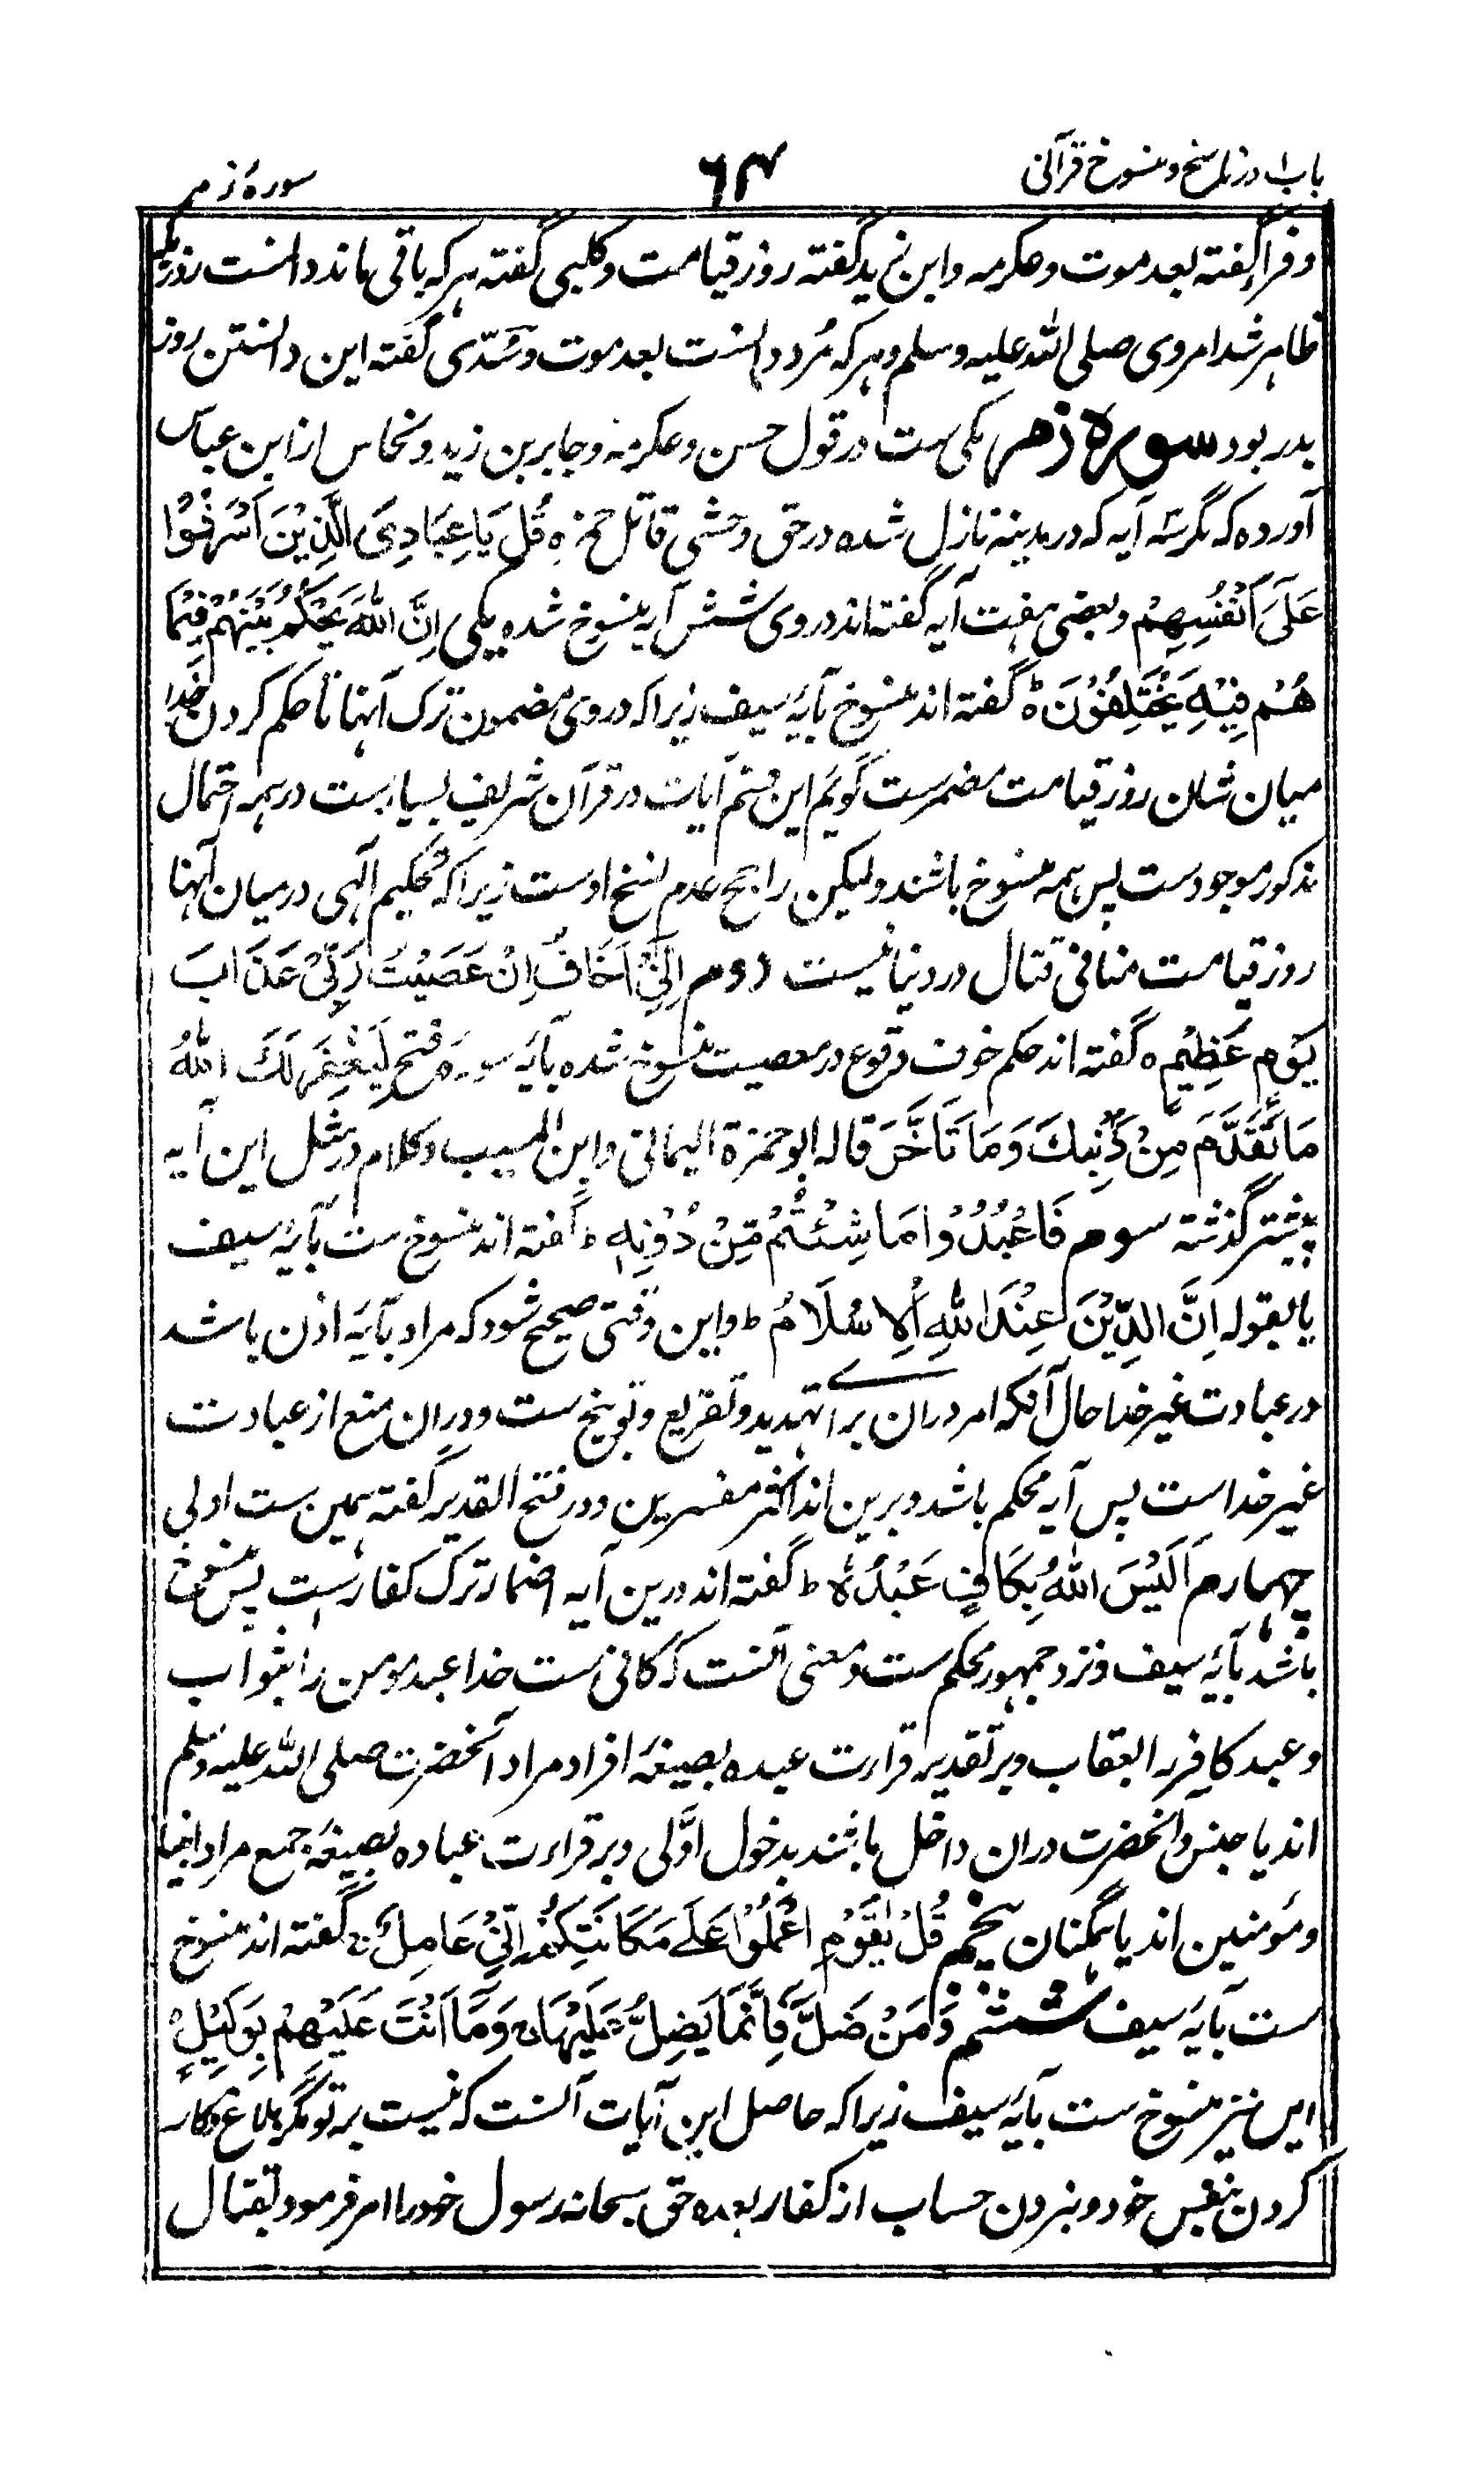 باب ۱ در ناسخ و منسوخ قرآنی
۶۴
سورۂ زمر
و فرا گفته بعد موت و عکرمه و ابن زید گفته روز قیامت و کلبی گفته هر که باقی ماند دانست زوزیکه
ظاهر شد امر وی صلی الله علیه وسلم و هر که مُرد دانست بعد موت و سُدّی گفته این دانستن روز
بدر بود سوره زمر مکی ست در قول حسن و عکرمه و جابر بن زید و نحاس از ابن عباس
آورده که مگر سه آیه که در مدینه نازل شده در حق وحشی قاتل حمزه قُلْ يَا عِبَادِيَ الَّذِيْنَ اَسْرَفُوْا
عَلَى اَنْفُسِهِمْ و بعضی هفت آیه گفته اند در وی شش آیه منسوخ شده یکی اِنَّ اللّٰهَ يَحْكُمُ بَيْنَهُمْ فِيْمَا
هُمْ فِيْهِ يَخْتَلِفُوْنَ ط گفته اند منسوخ بآیۂ سیف زیرا که در وی مضمون ترک آنها تا حکم کردن خدا
میان شان روز قیامت مضمرست گویم این قسم آیات در قرآن شریف بسیارست در همه احتمال
مذکور موجودست پس همه منسوخ باشند ولیکن راجح عدم نسخ اوست زیرا که تحکیم الهی درمیان آنها
روز قیامت منافی قتال در دنیا نیست دوم اِنِّيْ اَخَافُ اِنْ عَصَيْتُ رَبِّيْ عَذَابَ
يَوْمٍ عَظِيْمٍ ه گفته اند حکم خوف وقوع در معصیت منسوخ شده بآیۂ سورۂ فتح لِيَغْفِرَ لَكَ اللّٰهُ
مَا تَقَدَّمَ مِنْ ذَنْبِكَ وَمَا تَاَخَّرَ قاله ابو حمزة الیمانی و ابن المسیب و کلام در مثل این آیه
پیشتر گذشته سوم فَاعْبُدُوْا مَا شِئْتُمْ مِّنْ دُوْنِهٖ ط گفته اند منسوخ ست بآیۂ سیف
یا بقوله اِنَّ الدِّيْنَ عِنْدَ اللّٰهِ الْاِسْلَامُ ط و این وقتی صحیح شود که مراد بآیۂ اذن باشد
در عبادت غیر خدا حال آنکه امر دران برای تهدید و تقریع و توبیخ ست و دران منع از عبادت
غیر خداست پس آیه محکم باشد و برین اند اکثر مفسرین و در فتح القدیر گفته همین ست اولی
چهارم اَلَيْسَ اللّٰهُ بِكَافٍ عَبْدَهٗ ط گفته اند درین آیه اضمار ترک کفارست پس منسوخ
باشد بآیۂ سیف و نزد جمهور محکم ست و معنی آنست که کافی ست خدا عبد مومن را بثواب
و عبد کافر را بعقاب و بر تقدیر قراءت عبده بصیغۂ افراد مراد آنحضرت صلی الله علیه وسلم
اند یا جنس و آنحضرت دران داخل باشند بدخول اوَّلی و بر قراءت عباده بصیغۂ جمع مراد انبیا
و مؤمنین اند یا همگنان پنجم قُلْ يٰقَوْمِ اعْمَلُوْا عَلٰى مَكَانَتِكُمْ اِنِّيْ عَامِلٌ ج گفته اند منسوخ
ست بآیۂ سیف ششم وَمَنْ ضَلَّ فَاِنَّمَا يَضِلُّ عَلَيْهَا ج وَمَا اَنْتَ عَلَيْهِمْ بِوَكِيْلٍ
این نیز منسوخ ست بآیۂ سیف زیرا که حاصل این آیات آنست که نیست بر تو مگر بلاغ و کار
کردن بنفس خود و نبردن حساب از کفار بعده حق سبحانه رسول خود را امر فرمود بقتال